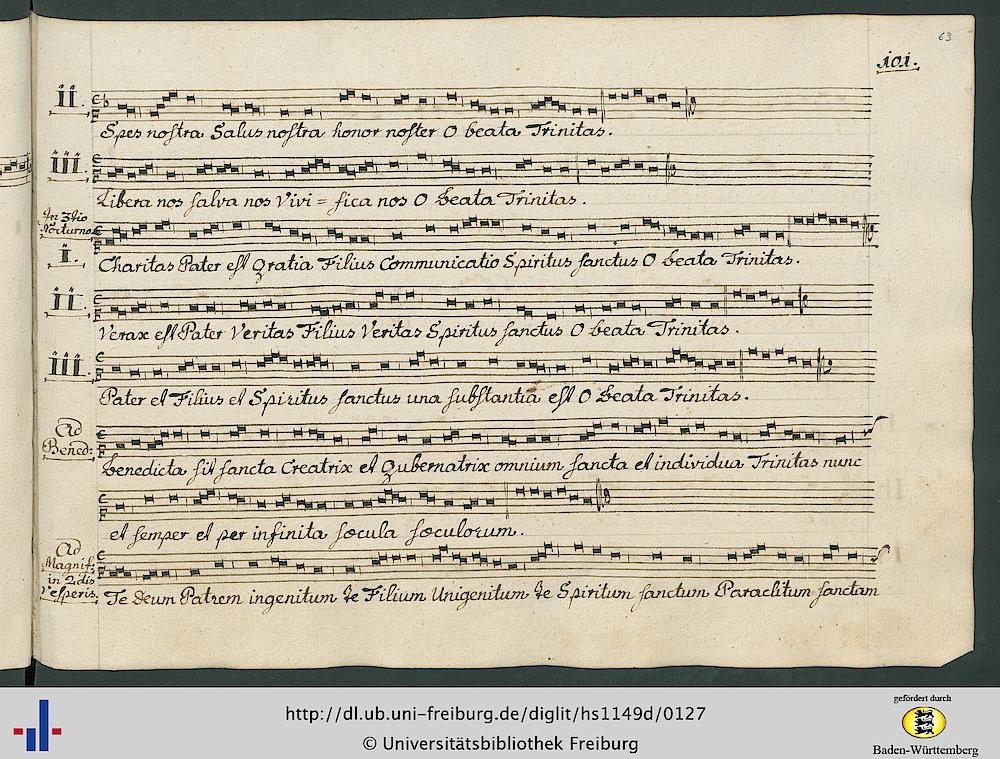 63
101.
II.
Spes nostra Salus nostra honor noster O beata Trinitas.
III.
Libera nos salva nos Vivi = fica nos O beata Trinitas.
In 3tio
Nocturno
I.
Charitas Pater est Gratia Filius Communicatio Spiritus sanctus O beata Trinitas.
II.
Verax est Pater Veritas Filius Veritas Spiritus sanctus O beata Trinitas.
III.
Pater et Filius et Spiritus sanctus una substantia est O beata Trinitas.
Ad
Bened:
Benedicta sit sancta Creatrix et Gubernatrix omnium sancta et individua Trinitas nunc
et semper et per infinita sœcula sœculorum.
Ad
Magnif:
in 2dis
Vesperis.
Te Deum Patrem ingenitum te Filium Unigenitum te Spiritum sanctum Paraclitum sanctam
http://dl.ub.uni-freiburg.de/diglit/hs1149d/0127
© Universitätsbibliothek Freiburg
gefördert durch
Baden-Württemberg